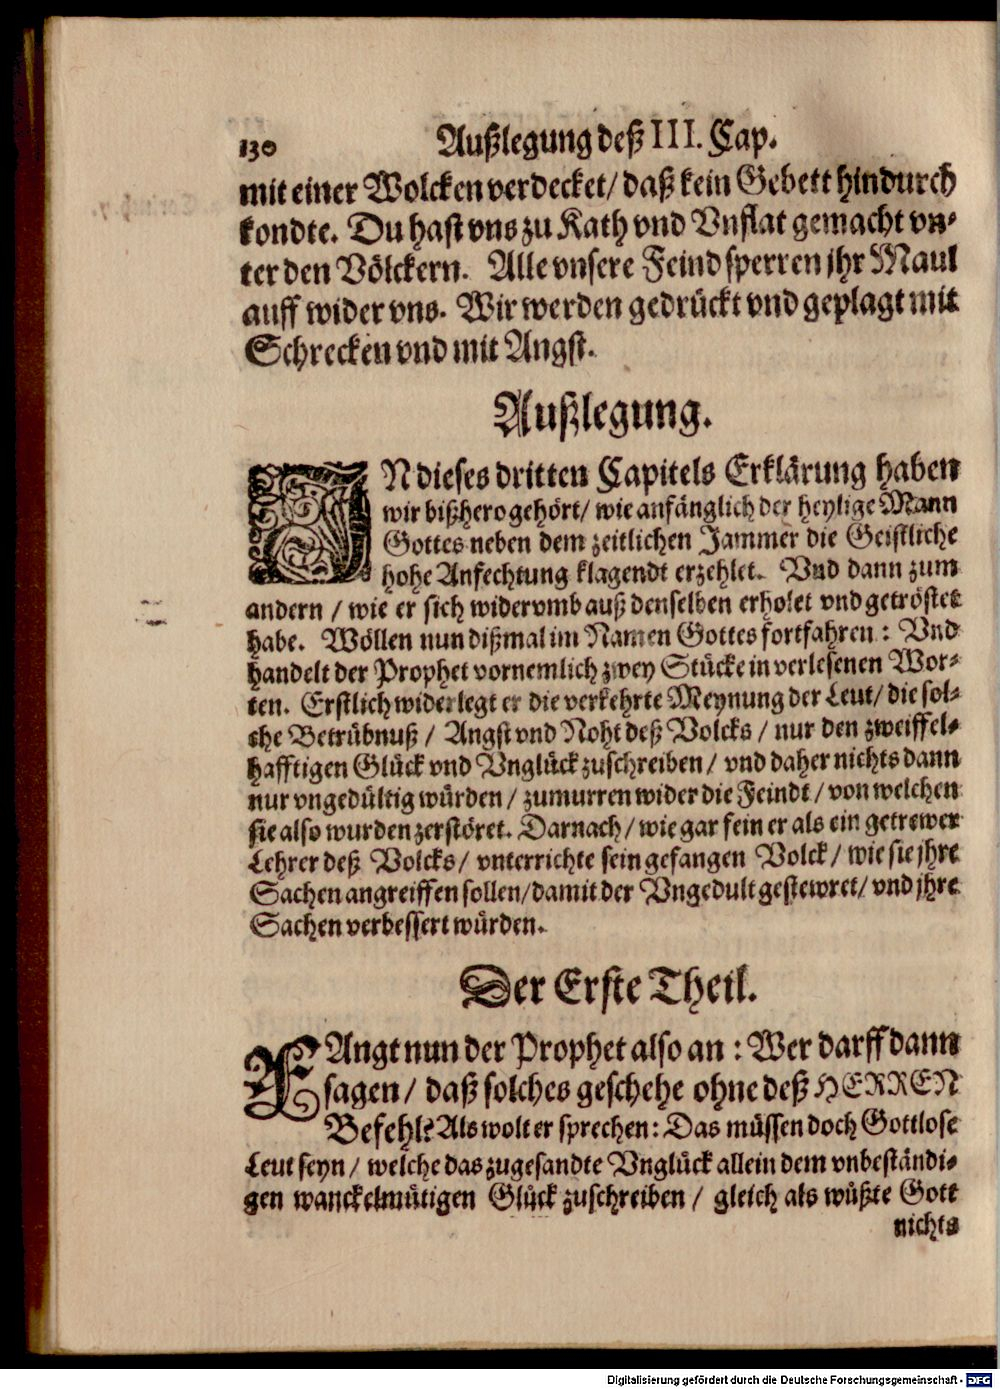 130 Außlegung deß III. Cap.
mit einer Wolcken verdecket/ daß kein Gebett hindurch
kondte. Du hast vns zu Kath vnd Vnflat gemacht vn-
ter den Völckern. Alle vnsere Feind sperren jhr Maul
auff wider vns. Wir werden gedrückt vnd geplagt mit
Schrecken vnd mit Angst.
Außlegung.
IN dieses dritten Capitels Erklärung haben
wir bißhero gehört/ wie anfänglich der heylige Mann
Gottes neben dem zeitlichen Jammer die Geistliche
hohe Anfechtung klagendt erzehlet. Vnd dann zum
andern / wie er sich widervmb auß denselben erholet vnd getröstet
habe. Wöllen nun dißmal im Namen Gottes fortfahren : Vnd
handelt der Prophet vornemlich zwey Stücke in verlesenen Wor-
ten. Erstlich widerlegt er die verkehrte Meynung der Leut/ die sol-
che Betrübnuß / Angst vnd Noht deß Volcks / nur den zweiffel-
hafftigen Glück vnd Vnglück zuschreiben / vnd daher nichts dann
nur vngedültig würden / zumurren wider die Feindt / von welchen
sie also wurden zerstöret. Darnach / wie gar fein er als ein getrewer
Lehrer deß Volcks / vnterrichte sein gefangen Volck / wie sie jhre
Sachen angreiffen sollen/ damit der Vngedult gestewret/ vnd jhre
Sachen verbessert würden.
Der Erste Theil.
FAngt nun der Prophet also an : Wer darff dann
sagen / daß solches geschehe ohne deß HERREN
Befehl? Als wolt er sprechen : Das müssen doch Gottlose
Leut seyn / welche das zugesandte Vnglück allein dem vnbeständi-
gen wanckelmütigen Glück zuschreiben / gleich als wüßte Gott
nichts
Digitalisierung gefördert durch die Deutsche Forschungsgemeinschaft - DFG